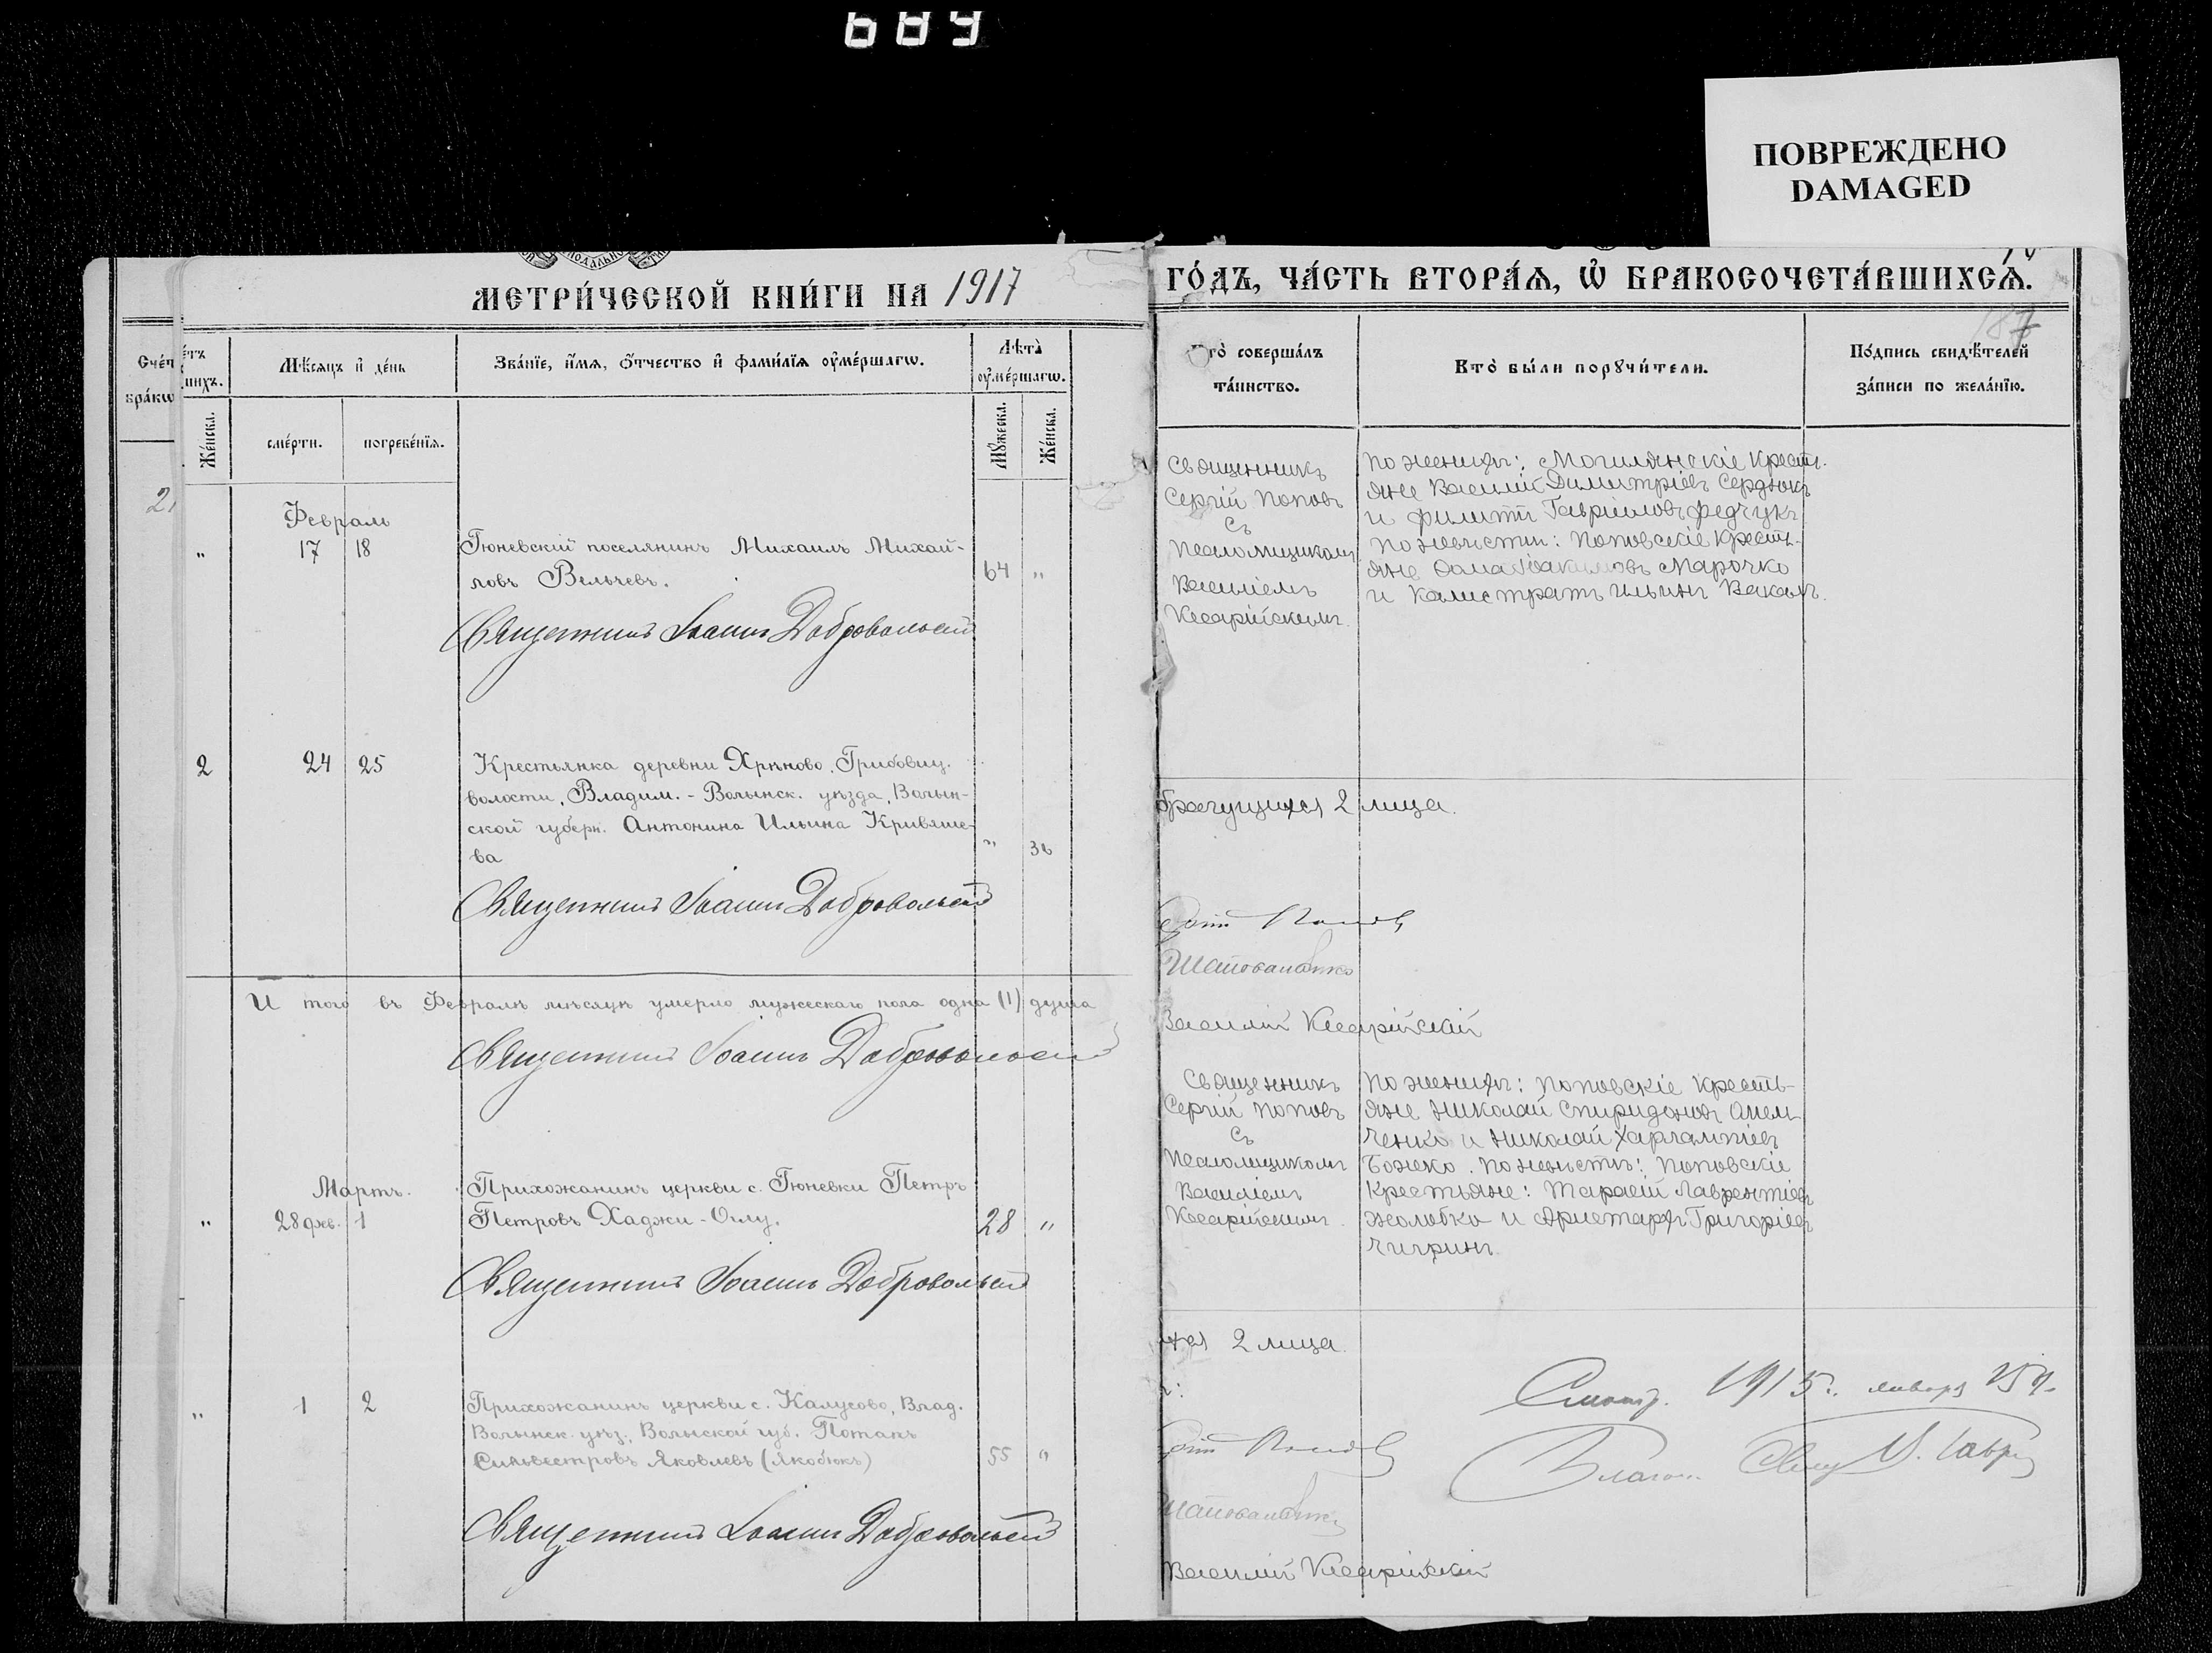 689
ПОВРЕЖДЕНО
DAMAGED
МЕТРИ́ЧЕСКОЙ КНИ́ГИ НА 1917
Сче́т
бра́кѡ
2
е́тъ
шихъ.
Же́нска.
Мѣ́сяцъ и҆ де́нь
сме́рти.
погребе́нїѧ.
Зва́нїе, и҆́мѧ, ѻ҆́тчество и҆ фами́лїѧ ᲂу҆ме́ршагѡ.
Лѣта̀
ᲂу҆ме́ршагѡ.
Мꙋ́жеска.
Же́нска.
Февраль
" 17 18 Тюневский поселянинъ Михаилъ Михай-
ловъ Вельчевъ. 64 "
Священникъ Іоаннъ Добровольскій
2 24 25 Крестьянка деревни Хрѣново, Грибовиц.
волости, Владим.-Волынск. уѣзда, Волын-
ской губерн. Антонина Ильина Кривяше-
ва " 36
Священникъ Іоаннъ Добровольскій
И того въ Февралѣ мѣсяцѣ умерло мужескаго пола одна (1) душа
Священникъ Іоаннъ Добровольскій
Мартъ.
" 28 фев. 1 Прихожанинъ церкви с. Тюневки Петръ
Петровъ Хаджи-Оглу. 28 "
Священникъ Іоаннъ Добровольскій
" 1 2 Прихожанинъ церкви с. Калусово, Влад.
Волынск. уѣз., Волынской губ. Потапъ
Сильвестровъ Яковлевъ (Якобюкъ) 55 "
Священникъ Іоаннъ Добровольскій
ГО́ДЪ, ЧА́СТЬ ВТОРА́Ѧ, Ѡ҆ БРАКОСОЧЕТА́ВШИХСѦ.
187
Кто̀ соверша́лъ
та́инство.
Кто̀ бы́ли порꙋчи́тели.
По́дпись свидѣ́телей
за́писи по жела́нїю.
Священникъ
Сергій Поповъ
съ
Псаломщикомъ
Василіемъ
Кесарійскимъ.
по женихѣ: Могилянскіе крестъ-
яне Василій Димитріевъ Сердюкъ
и Филиппъ Гавріиловъ Федчукъ
по невѣстѣ: Поповскіе кресть-
яне Ѳома Іоакимовъ Марочко
и Калистратъ Ильинъ Вакалъ.
брачущихся 2 лица.
Поповъ
Шаповаленко
Василій Кесарійскій
Священникъ
Сергій Поповъ
съ
Псаломщикомъ
Василіемъ
Кесарійскимъ.
по женихѣ: Поповскіе кресть-
яне Николай Спиридоновъ Омель-
ченко и Николай Харлампіевъ
Божко. по невѣстѣ: Поповскіе
крестьяне: Тарасій Лаврентіевъ
Жолобко и Аристархъ Григоріевъ
Чигринъ.
2 лица.
Смотр. 1915 г. января 25 д.
Поповъ
Благоч. Свящ.
Шаповаленко
Василій Кесарійскій